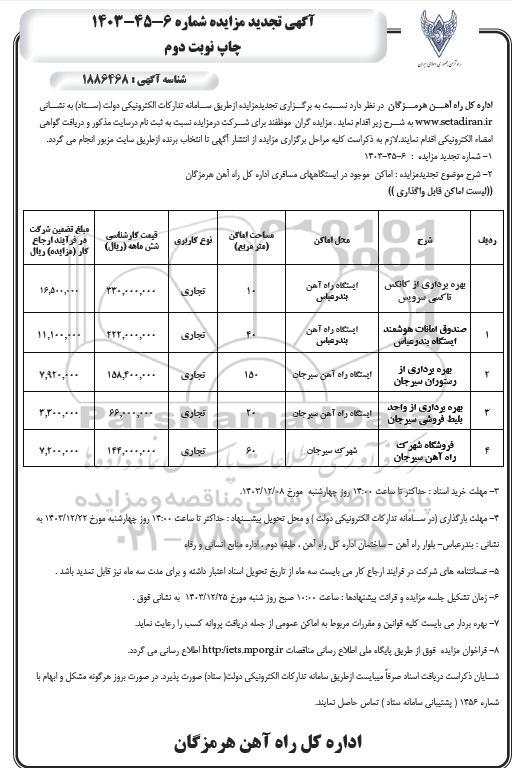 آگهی تجدید مزایده شماره ۶-۴۵-۱۴۰۳
چاپ نوبت دوم
راه آهن جمهوری اسلامی ایران
شناسه آگهی : ۱۸۸۶۴۶۸
اداره کل راه آهــن هرمــزگان در نظر دارد نسبت به برگــزاری تجدیدمزایده ازطریق سـامانه تدارکات الکترونیکی دولت (ستاد) به نشـانی
www.setadiran.ir به شــرح زیر اقدام نماید . مزایده گران موظفند برای شــرکت درمزایده نسبت به ثبت نام درسایت مذکور و دریافت گواهی
امضاء الکترونیکی اقدام نمایند.لازم به ذکراست کلیه مراحل برگزاری مزایده از انتشار آگهی تا انتخاب برنده ازطریق سایت مزبور انجام می گردد.
۱- شماره تجدید مزایده : ۶-۴۵-۱۴۰۳
۲- شرح موضوع تجدیدمزایده : اماکن موجود در ایستگاههای مسافری اداره کل راه آهن هرمزگان
((لیست اماکن قابل واگذاری ))
ردیف شرح محل اماکن مساحت اماکن (متر مربع) نوع کاربری قیمت کارشناسی شش ماهه (ریال) مبلغ تضمین شرکت در فرآیند ارجاع کار (مزایده) ریال
بهره برداری از کانکس تاکسی سرویس ایستگاه راه آهن بندرعباس ۱۰ تجاری ۳۳۰,۰۰۰,۰۰۰ ۱۶,۵۰۰,۰۰۰
۱ صندوق امانات هوشمند ایستگاه بندرعباس ایستگاه راه آهن بندرعباس ۴۰ تجاری ۲۲۲,۰۰۰,۰۰۰ ۱۱,۱۰۰,۰۰۰
۲ بهره برداری از رستوران سیرجان ایستگاه راه آهن سیرجان ۱۵۰ تجاری ۱۵۸,۴۰۰,۰۰۰ ۷,۹۲۰,۰۰۰
۳ بهره برداری از واحد بلیط فروشی سیرجان ایستگاه راه آهن سیرجان ۲۰ تجاری ۶۶,۰۰۰,۰۰۰ ۳,۳۰۰,۰۰۰
۴ فروشگاه شهرک راه آهن سیرجان شهرک سیرجان ۶۰ تجاری ۱۴۴,۰۰۰,۰۰۰ ۷,۲۰۰,۰۰۰
۳- مهلت خرید اسناد : حداکثر تا ساعت ۱۴:۰۰ روز چهارشنبه مورخ ۱۴۰۳/۱۲/۰۸.
۴- مهلت بارگذاری (در سـامانه تدارکات الکترونیکی دولت ) و محل تحویل پیشــنهاد : حداکثر تا ساعت ۱۴:۰۰ روز چهارشنبه مورخ ۱۴۰۳/۱۲/۲۲ به
نشانی : بندرعباس- بلوار راه آهن – ساختمان اداره کل راه آهن ، طبقه دوم ، اداره منابع انسانی و رفاه
۵- ضمانتنامه های شرکت در فرایند ارجاع کار می بایست سه ماه از تاریخ تحویل اسناد اعتبار داشته و برای مدت سه ماه نیز قابل تمدید باشد .
۶- زمان تشکیل جلسه مزایده و قرائت پیشنهادها : ساعت ۱۰:۰۰ صبح روز شنبه مورخ ۱۴۰۳/۱۲/۲۵ به نشانی فوق .
۷- بهره بردار می بایست کلیه قوانین و مقررات مربوط به اماکن عمومی از جمله دریافت پروانه کسب را رعایت نماید.
۸- فراخوان مزایده فوق از طریق پایگاه ملی اطلاع رسانی مناقصات http:/iets.mporg.ir اطلاع رسانی می گردد.
شــایان ذکراست دریافت اسناد صرفاً میبایست ازطریق سامانه تدارکات الکترونیکی دولت( ستاد) صورت پذیرد. در صورت بروز هرگونه مشکل و ابهام با
شماره ۱۴۵۶ ( پشتیبانی سامانه ستاد ) تماس حاصل نمایند.
اداره کل راه آهن هرمزگان
ParsNamadData
پایگاه اطلاع رسانی مناقصه و مزایده
۰۲۱-۸۸۳۴۹۶۷۰